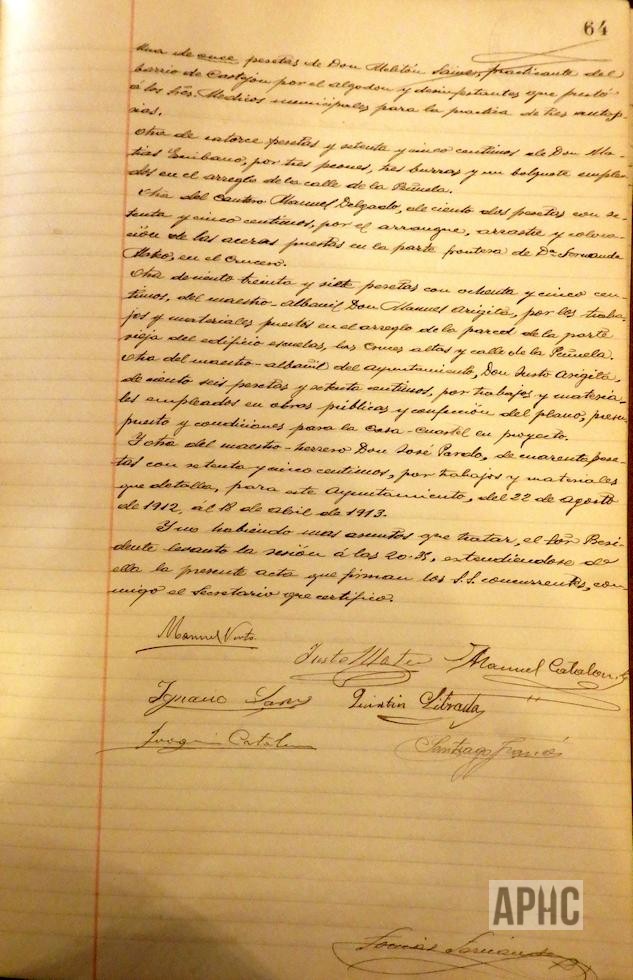 64
Una de once pesetas de Don Melitón Sainz, practicante del
barrio de Castejón por el algodon y desinfectantes que prestó
á los Sres. Medicos municipales para la practica de tres autop-
sias.
Otra de catorce pesetas y setenta y cinco centimos de Don Ma-
tias Escribano, por tres peones, tres burros y un bolquete emplea-
dos en el arreglo de la calle de la Peñuela.
Otra del Cantero Manuel Delgado, de ciento dos pesetas con se-
tenta y cinco centimos, por el arranque, arrastre y coloca-
ción de las aceras puestas en la parte frontera de Dª Fernanda
en el Crucero.
Otra de ciento treinta y siete pesetas con ochenta y cinco cen-
timos, del maestro-albañil Don Manuel Arigita, por los traba-
jos y materiales puestos en el arreglo de la pared de la parte
vieja del edificio escuelas, las Cruces altas y calle de la Peñuela.
Otra del maestro-albañil del Ayuntamiento, Don Justo Arigita,
de ciento seis pesetas y setenta centimos, por trabajos y materia-
les empleados en obras públicas y confección del plano, presu-
puesto y condiciones para la Casa-Cuartel en proyecto.
Y otra del maestro-herrero Don José Pardo, de cuarenta pese-
tas con setenta y cinco centimos, por trabajos y materiales
que detalla, para este Ayuntamiento, del 22 de agosto
de 1912, al 18 de abril de 1913.
Y no habiendo mas asuntos que tratar, el Sor Presi-
dente levantó la sesión á las 20.25, extendiendose de
ella la presente acta que firman los S.S. concurrentes, con-
migo el Secretario que certifico.
Manuel
Justo Manuel Catalan
Ignacio Sanz Quintin Librada
Joaquin Catalan Santiago Francés
APHC
Tomás